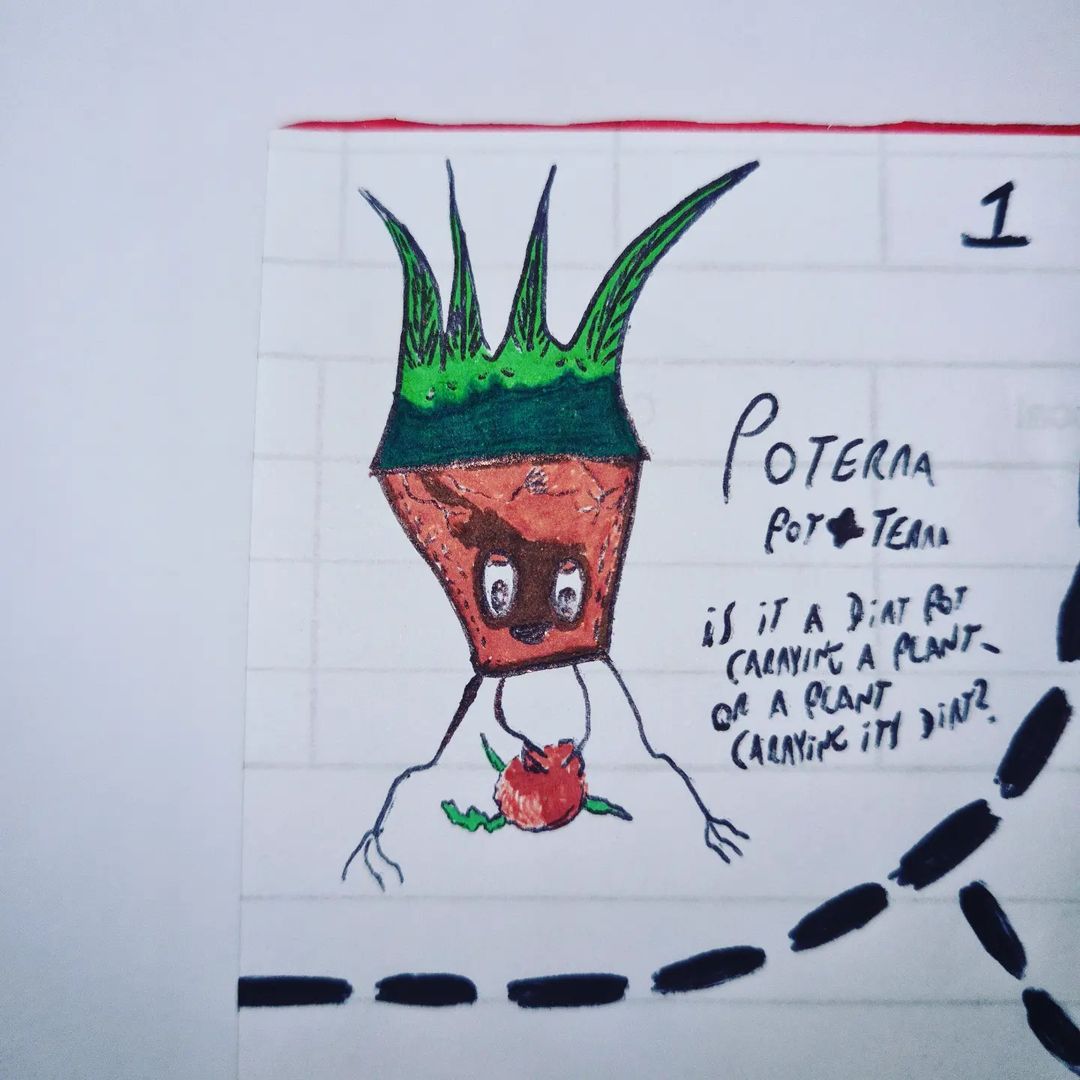 1
POTERRA
POT + TERRA
IS IT A DIRT POT
CARRYING A PLANT
OR A PLANT
CARRYING ITS DIRT?